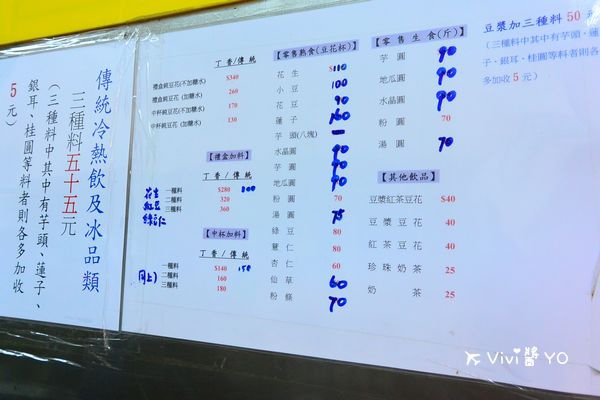 傳統冷熱飲及冰品類
三種料五十五元
(三種料中其中有芋頭、蓮子、
銀耳、桂圓等料者則各多加收
5元)
丁香/傳統
禮盒純豆花(不加糖水) $340
禮盒純豆花 (加糖水) 260
中杯純豆花(不加糖水) 170
中杯純豆花 (加糖水) 130
【禮盒加料】
丁香/傳統
花生
紅豆
綠豆仁
一種料 $280 300
二種料 320
三種料 360
【中杯加料】
丁香/傳統
同上)
一種料 $140 150
二種料 160
三種料 180
【零售熟食(豆花杯)】
花生 $110
小豆 100
花豆 90
蓮子 160
芋頭(八塊) 一
水晶圓 90
芋圓 90
地瓜圓 90
粉圓 70
湯圓 75
綠豆 80
薏仁 80
杏仁 60
仙草 60
粉條 70
【零售生食(斤)】
芋圓 90
地瓜圓 90
水晶圓 90
粉圓 70
湯圓 70
【其他飲品】
豆漿紅茶豆花 $40
豆漿豆花 40
紅茶豆花 40
珍珠奶茶 25
奶茶 25
豆漿加三種料 50 元
(三種料中其中有芋頭、蓮
子、銀耳、桂圓等料者則各
多加收 5 元)
Vivi醬YO